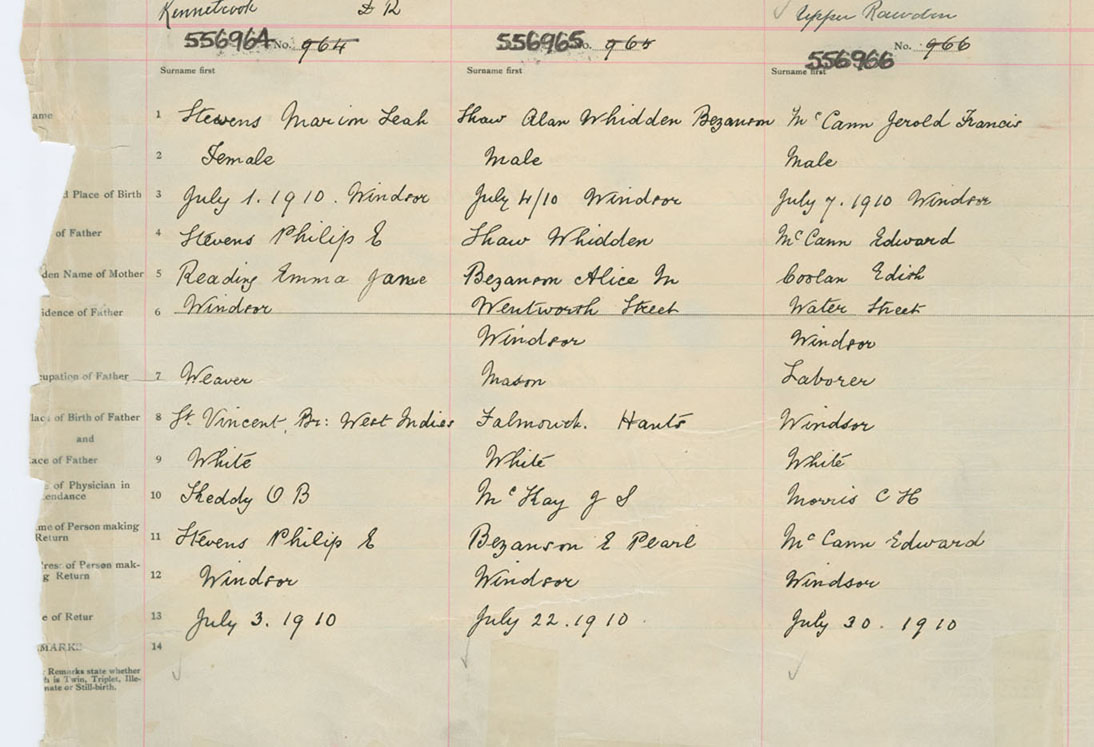 Kennetcook D R Upper Rawdon
556964 No. 964 556965 No. 965 556966 No. 966
Surname first Surname first Surname first
ame 1 Stevens Marion Leah Shaw Alan Whidden Bezanson McCann Jerold Francis
2 Female Male Male
d Place of Birth 3 July 1. 1910. Windsor July 4/10 Windsor July 7. 1910 Windsor
of Father 4 Stevens Philip E Shaw Whidden McCann Edward
den Name of Mother 5 Reading Emma Jane Bezanson Alice M Coolan Edith
idence of Father 6 Windsor Wentworth Street Water Street
Windsor Windsor
cupation of Father 7 Weaver Mason Laborer
lace of Birth of Father 8 St. Vincent, Br: West Indies Falmouth. Hants Windsor
and
ace of Father 9 White White White
e of Physician in
tendance 10 Keddy O B McKay J S Morris C H
me of Person making
Return 11 Stevens Philip E Bezanson E Pearl McCann Edward
res: of Person mak-
g Return 12 Windsor Windsor Windsor
e of Retur 13 July 3. 1910 July 22. 1910. July 30. 1910
MARK: 14
: Remarks state whether
h is Twin, Triplet, Ille-
nate or Still-birth.